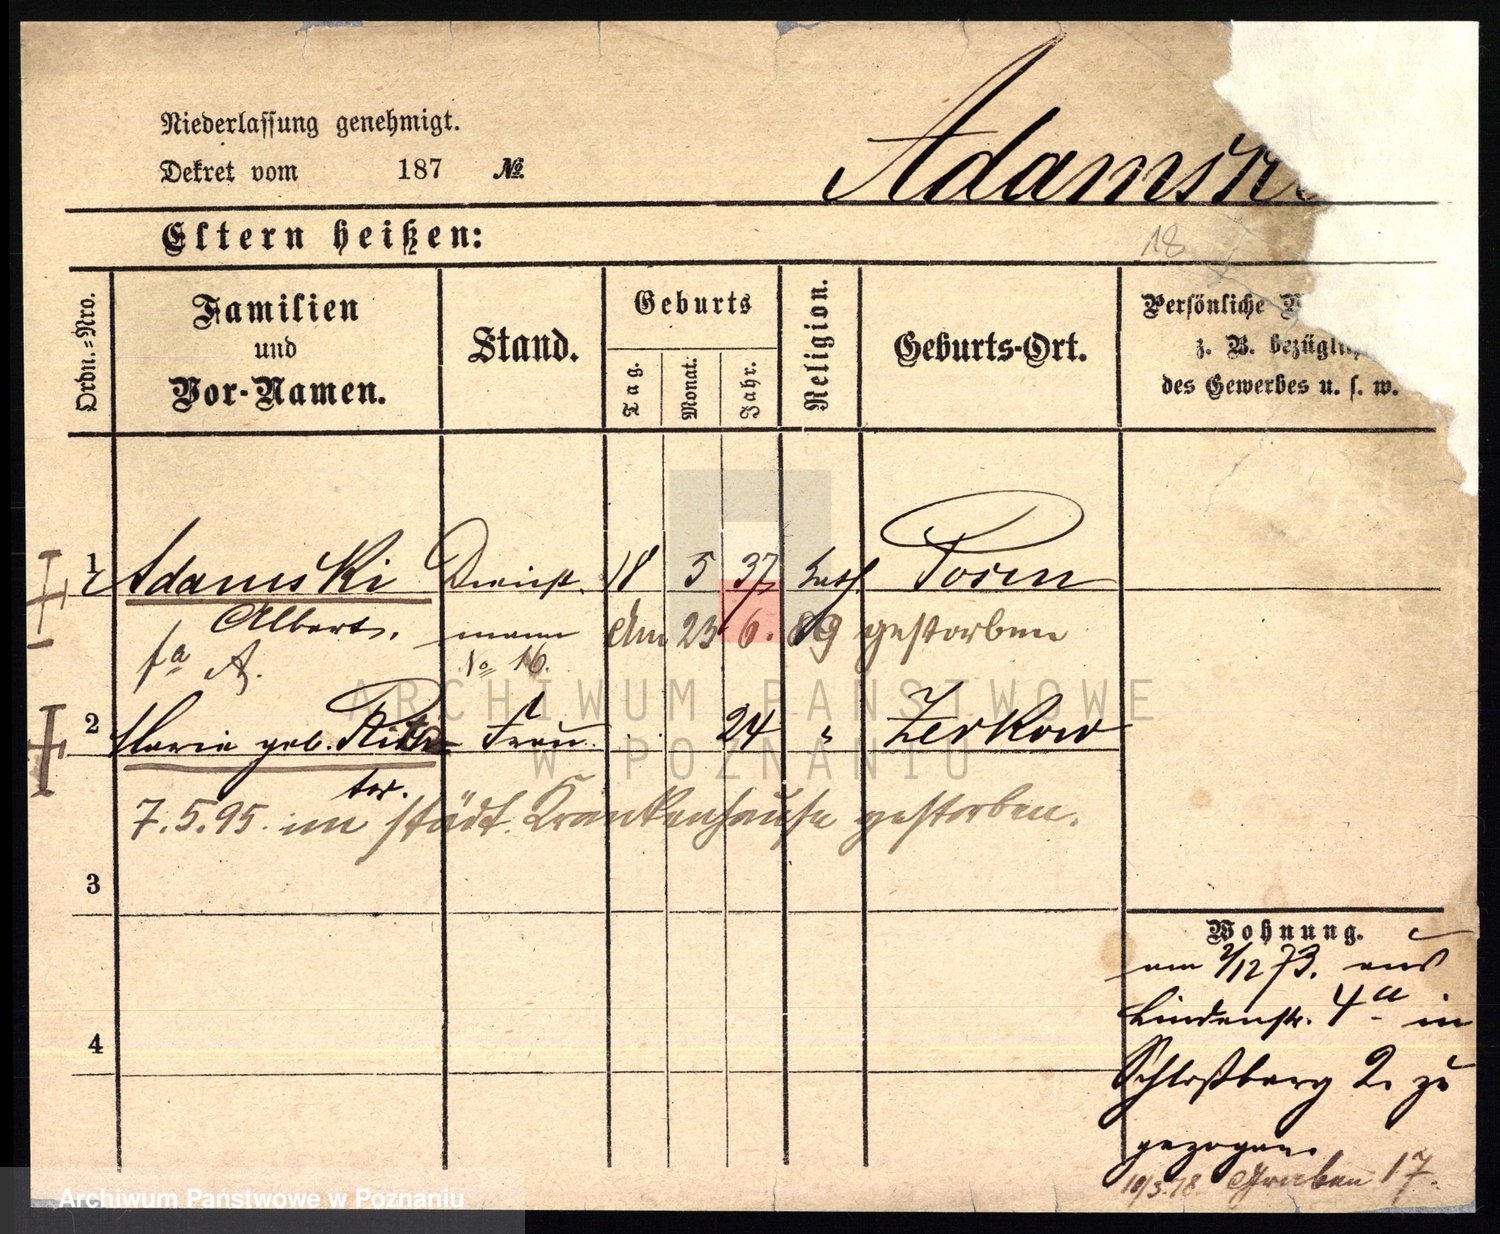 Niederlassung genehmigt.
Dekret vom 187 №
Adamsk
Eltern heißen:
18
Ordn.=Nro.
Familien
und
Vor-Namen.
Stand.
Geburts
Tag.
Monat.
Jahr.
Religion.
Geburts-Ort.
Persönliche
z. B. bezügli
des Gewerbes u. s. w.
1 Adamski Dienst 18 5 37 kath. Posen
Albert. mann am 23 6. 89 gestorben
No 16.
2 Maria geb. Rich- Frau 24 " Zerkow
ter.
7.5.95. im städt. Krankenhause gestorben.
3
4
Wohnung.
am 2/12 73. aus
Lindenstr. 4a in
Schloßberg 2. zu
gezogen.
10/3.78 Graben 17.
ARCHIWUM PAŃSTWOWE
W POZNANIU
Archiwum Państwowe w Poznaniu